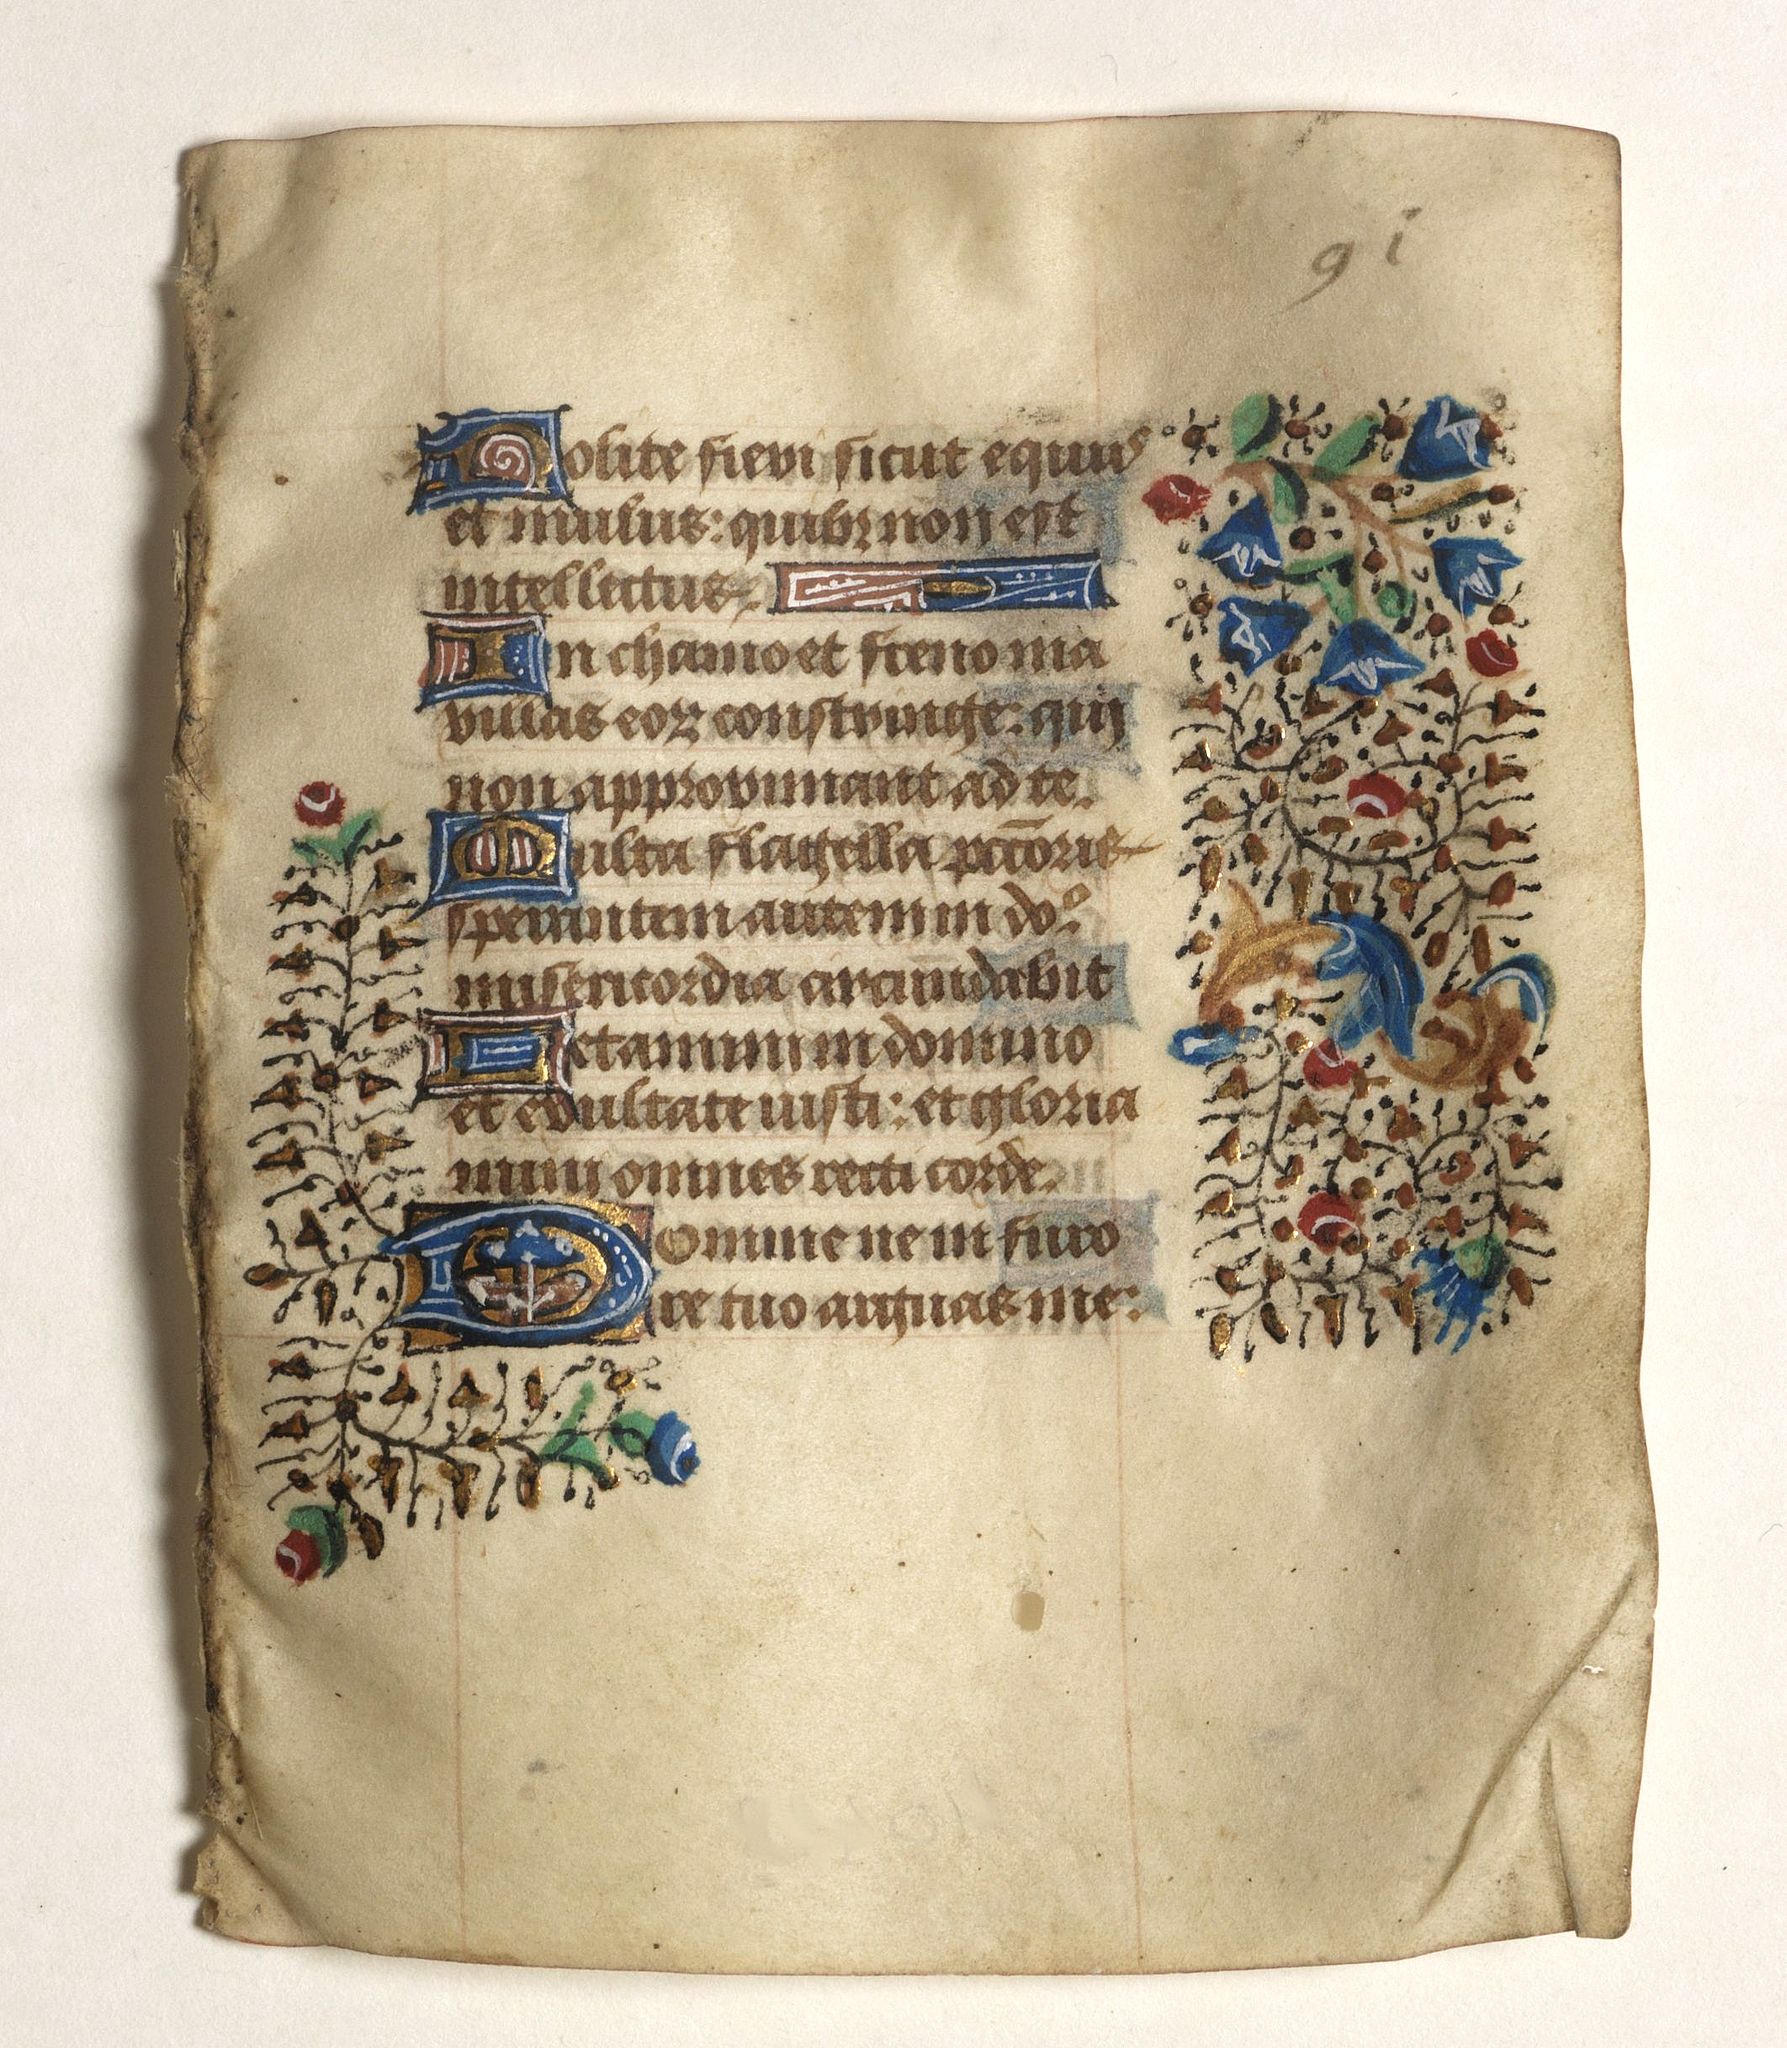 9 i
Nolite fieri sicut equus
et mulus: quibꝫ non est
intellectus.
In chamo et freno ma
xillas eoꝝ constringe: qui
non approximant ad te.
Multa flagella pc̄c̄oris
sperantem autem in dōo
misericordia circūdabit
Letamini in domino
et exultate iusti: et gloria
mini omnes recti corde.
Domine ne in furo
re tuo arguas me: